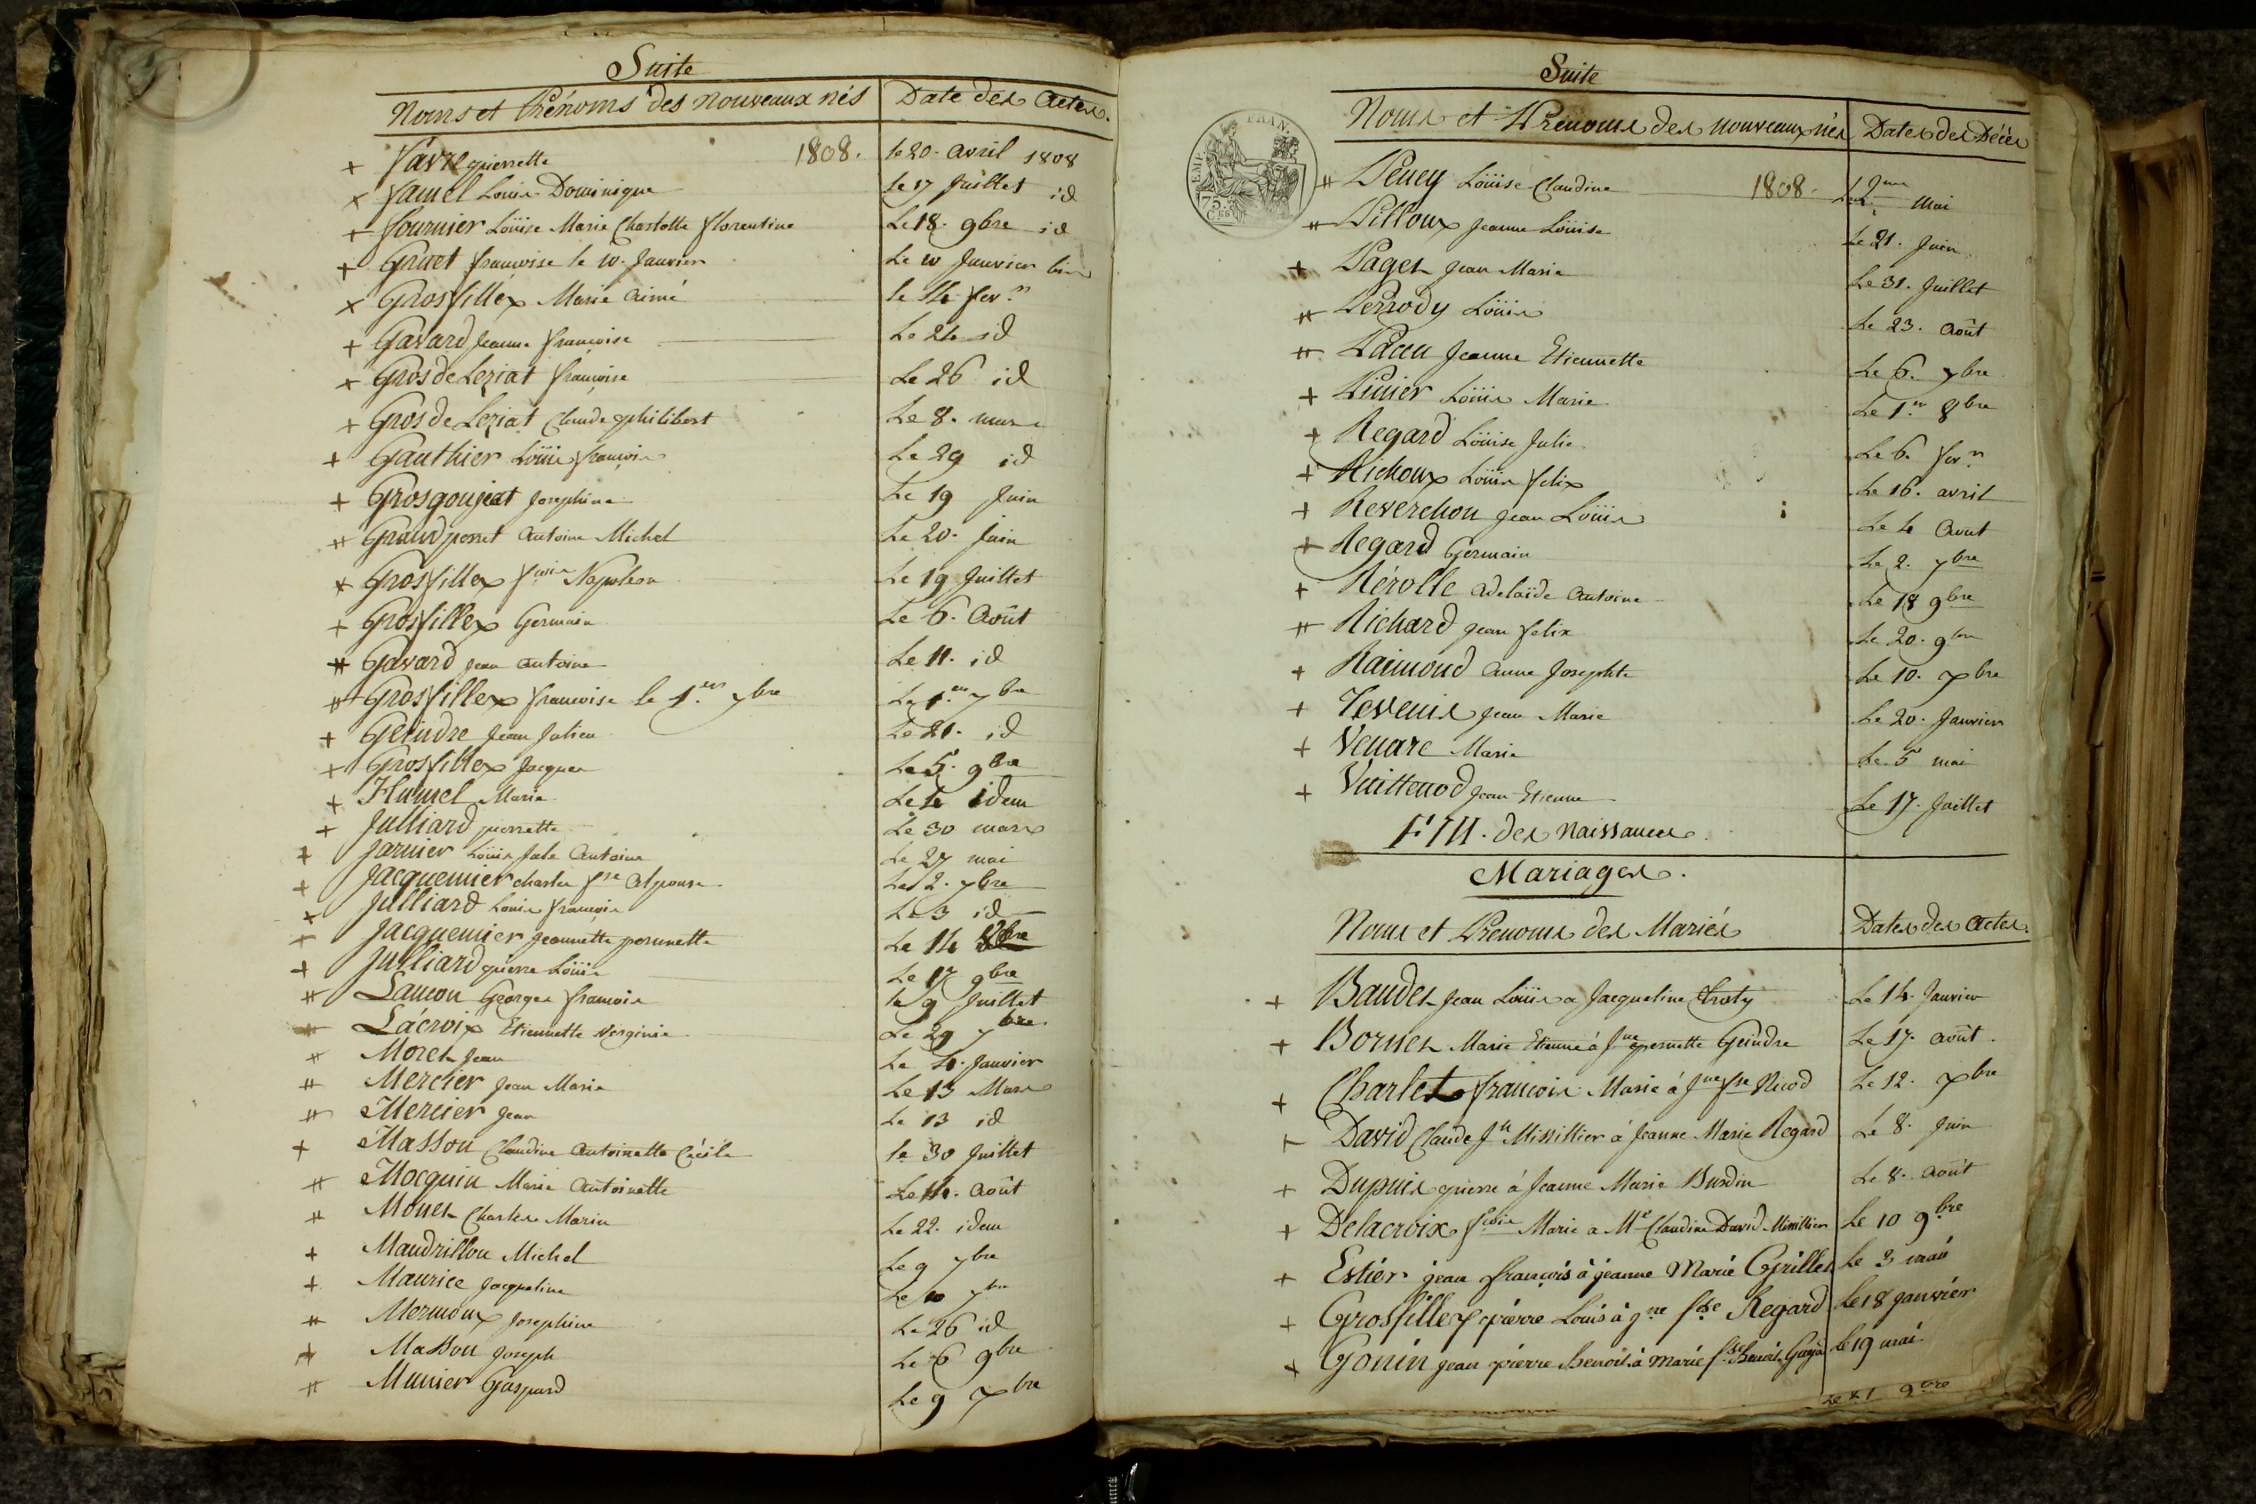 Suite
Noms et Prénoms des nouveaux nés Date des Actes.
+ Favre pierrette 1808. le 20. avril 1808
+ famel Louis Dominique le 17 Juillet id
+ fournier Loüise Marie Charlotte florentine Le 18. 9bre id
+ Grivet françoise le 10. Janvier Le 10 Janvier
+ Grosfillex Marie Aimé le 14 fer.
+ Gavard Jeanne françoise Le 24 id
+ Gros de Leziat françoise Le 26 id
+ Gros de Leziat Claude philibert Le 8. mars
+ Gauthier Loüis françois Le 29 id
+ Grosgoujeat Josephine Le 19 Juin
# Grandperret Antoine Michel Le 20. Juin
+ Grosfillex fçois Napoleon Le 19 Juillet
+ Grosfillex Germain Le 6. Août
# Gavard Jean Antoine Le 11. id
# Grosfillex françoise le 1.er 7bre Le 1.er 7bre
+ Geindre Jean Julien Le 21. id
+ Grosfillex Jacques Le 5. 9bre
+ Humel Marie Le 14 idem
+ Julliard pierrette Le 30 mars
+ Jarnier Loüis Jule Antoine Le 27 mai
+ Jacquemier charles fse Alponse Le 2. 7bre
+ Julliard Louis françois Le 3 id
+ Jacquemier Jeannette pernette Le 14
+ Julliard pierre Loüis Le 17 9bre
# Lançon Georges françois le 9 Juillet
+ Lacroix Etiennette Verginie Le 29 7bre
# Moret Jean Le 4. Janvier
# Mercier Jean Marie Le 13 Mars
# Mercier Jean Le 13 id
+ Masson Claudine Antoinette Cécile le 30 Juillet
# Mocquin Marie Antoinette Le 14. Août
# Monet Charles Marin Le 22. idem
+ Mandrillon Michel Le 9 7bre
+ Maurice Jacqueline Le 10 7bre
# Mermoux Josephine Le 26 id
+ Masson Joseph Le 6 9bre
# Munier Gaspard Le 9 Xbre
Suite
Noms et Prénoms des nouveaux nés Dates des Décès
EMP. FRAN.
75
C.ES
# Peney Loüise Claudine 1808. Le mai
# Pilloux Jeanne Loüise Le 21. Juin
+ Paget Jean Marie Le 31. Juillet
# Perrody Loüis Le 23. Août
# Paccu Jeanne Etiennette Le 6. 7bre
+ Pinier Loüis Marie Le 1.er 8bre
+ Regard Loüise Julie Le 6. fer.
+ Richoux Loüis felix Le 16. avril
+ Reverchon Jean Loüis Le 4 Aout
+ Regard Germain Le 2. 7bre
+ Rérolle Adelaïde Antoine Le 18 9bre
# Richard Jean felix Le 20. 9bre
+ Raimond Anne Josephte Le 10. Xbre
+ Tevenis Jean Marie Le 20. Janvier
+ Venare Marie Le 5 mai
+ Vuittenod Jean Etienne Le 17. Juillet
FIN. des Naissances.
Mariages.
Noms et Prenoms des Mariés Dates des Actes.
+ Baudet Jean Loüis a Jacqueline Le 14. Janvier
+ Bornet Marie Etienne à Jne pernette Geindre Le 17. Août.
+ Charlet françois Marie à Jne fse Nicod Le 12. Xbre
+ David Claude Jh Missillier à Jeanne Marie Regard Le 8. Juin
+ Dupuis pierre à Jeanne Marie Burdin Le 8. Août
+ Delacroix fçois Marie a Me Claudine David-Missillier Le 10 9bre
+ Estier jean françois à jeanne Marie Grillet le 3 mai
+ Grosfillex pierre Louis à jne fse Regard le 18 janvier
+ Gonin jean pierre Benoit à marie fse Benoit le 19 mai
le 21 9bre